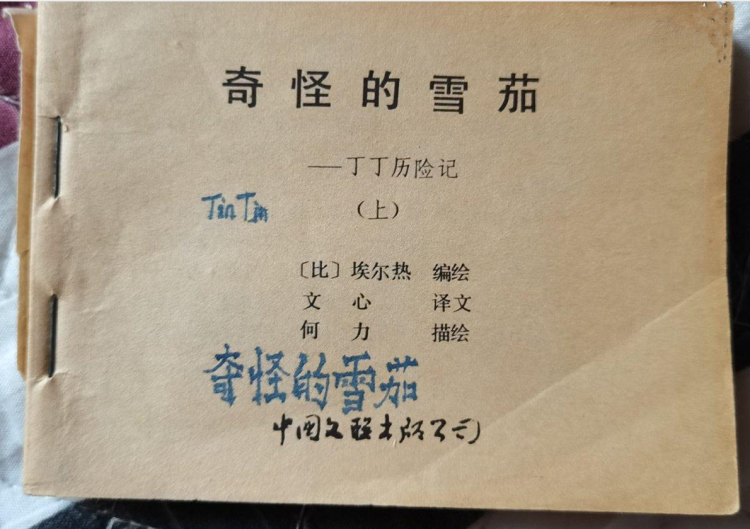 奇怪的雪茄
——丁丁历险记
(上)
TinTin
〔比〕埃尔热 编绘
文心 译文
何力 描绘
奇怪的雪茄
中国文联出版公司